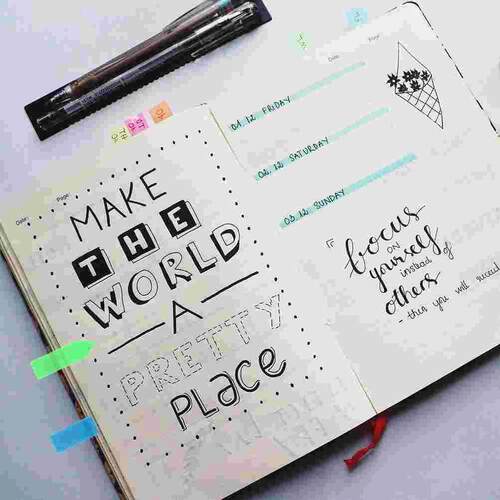 Date: Page:
MAKE
THE
WORLD
A
PRETTY
PLACE
Date: Page:
01. 12 FRIDAY
02. 12 SATURDAY
03. 12 SUNDAY
focus
ON
yourself
instead of
others
- then you will succeed